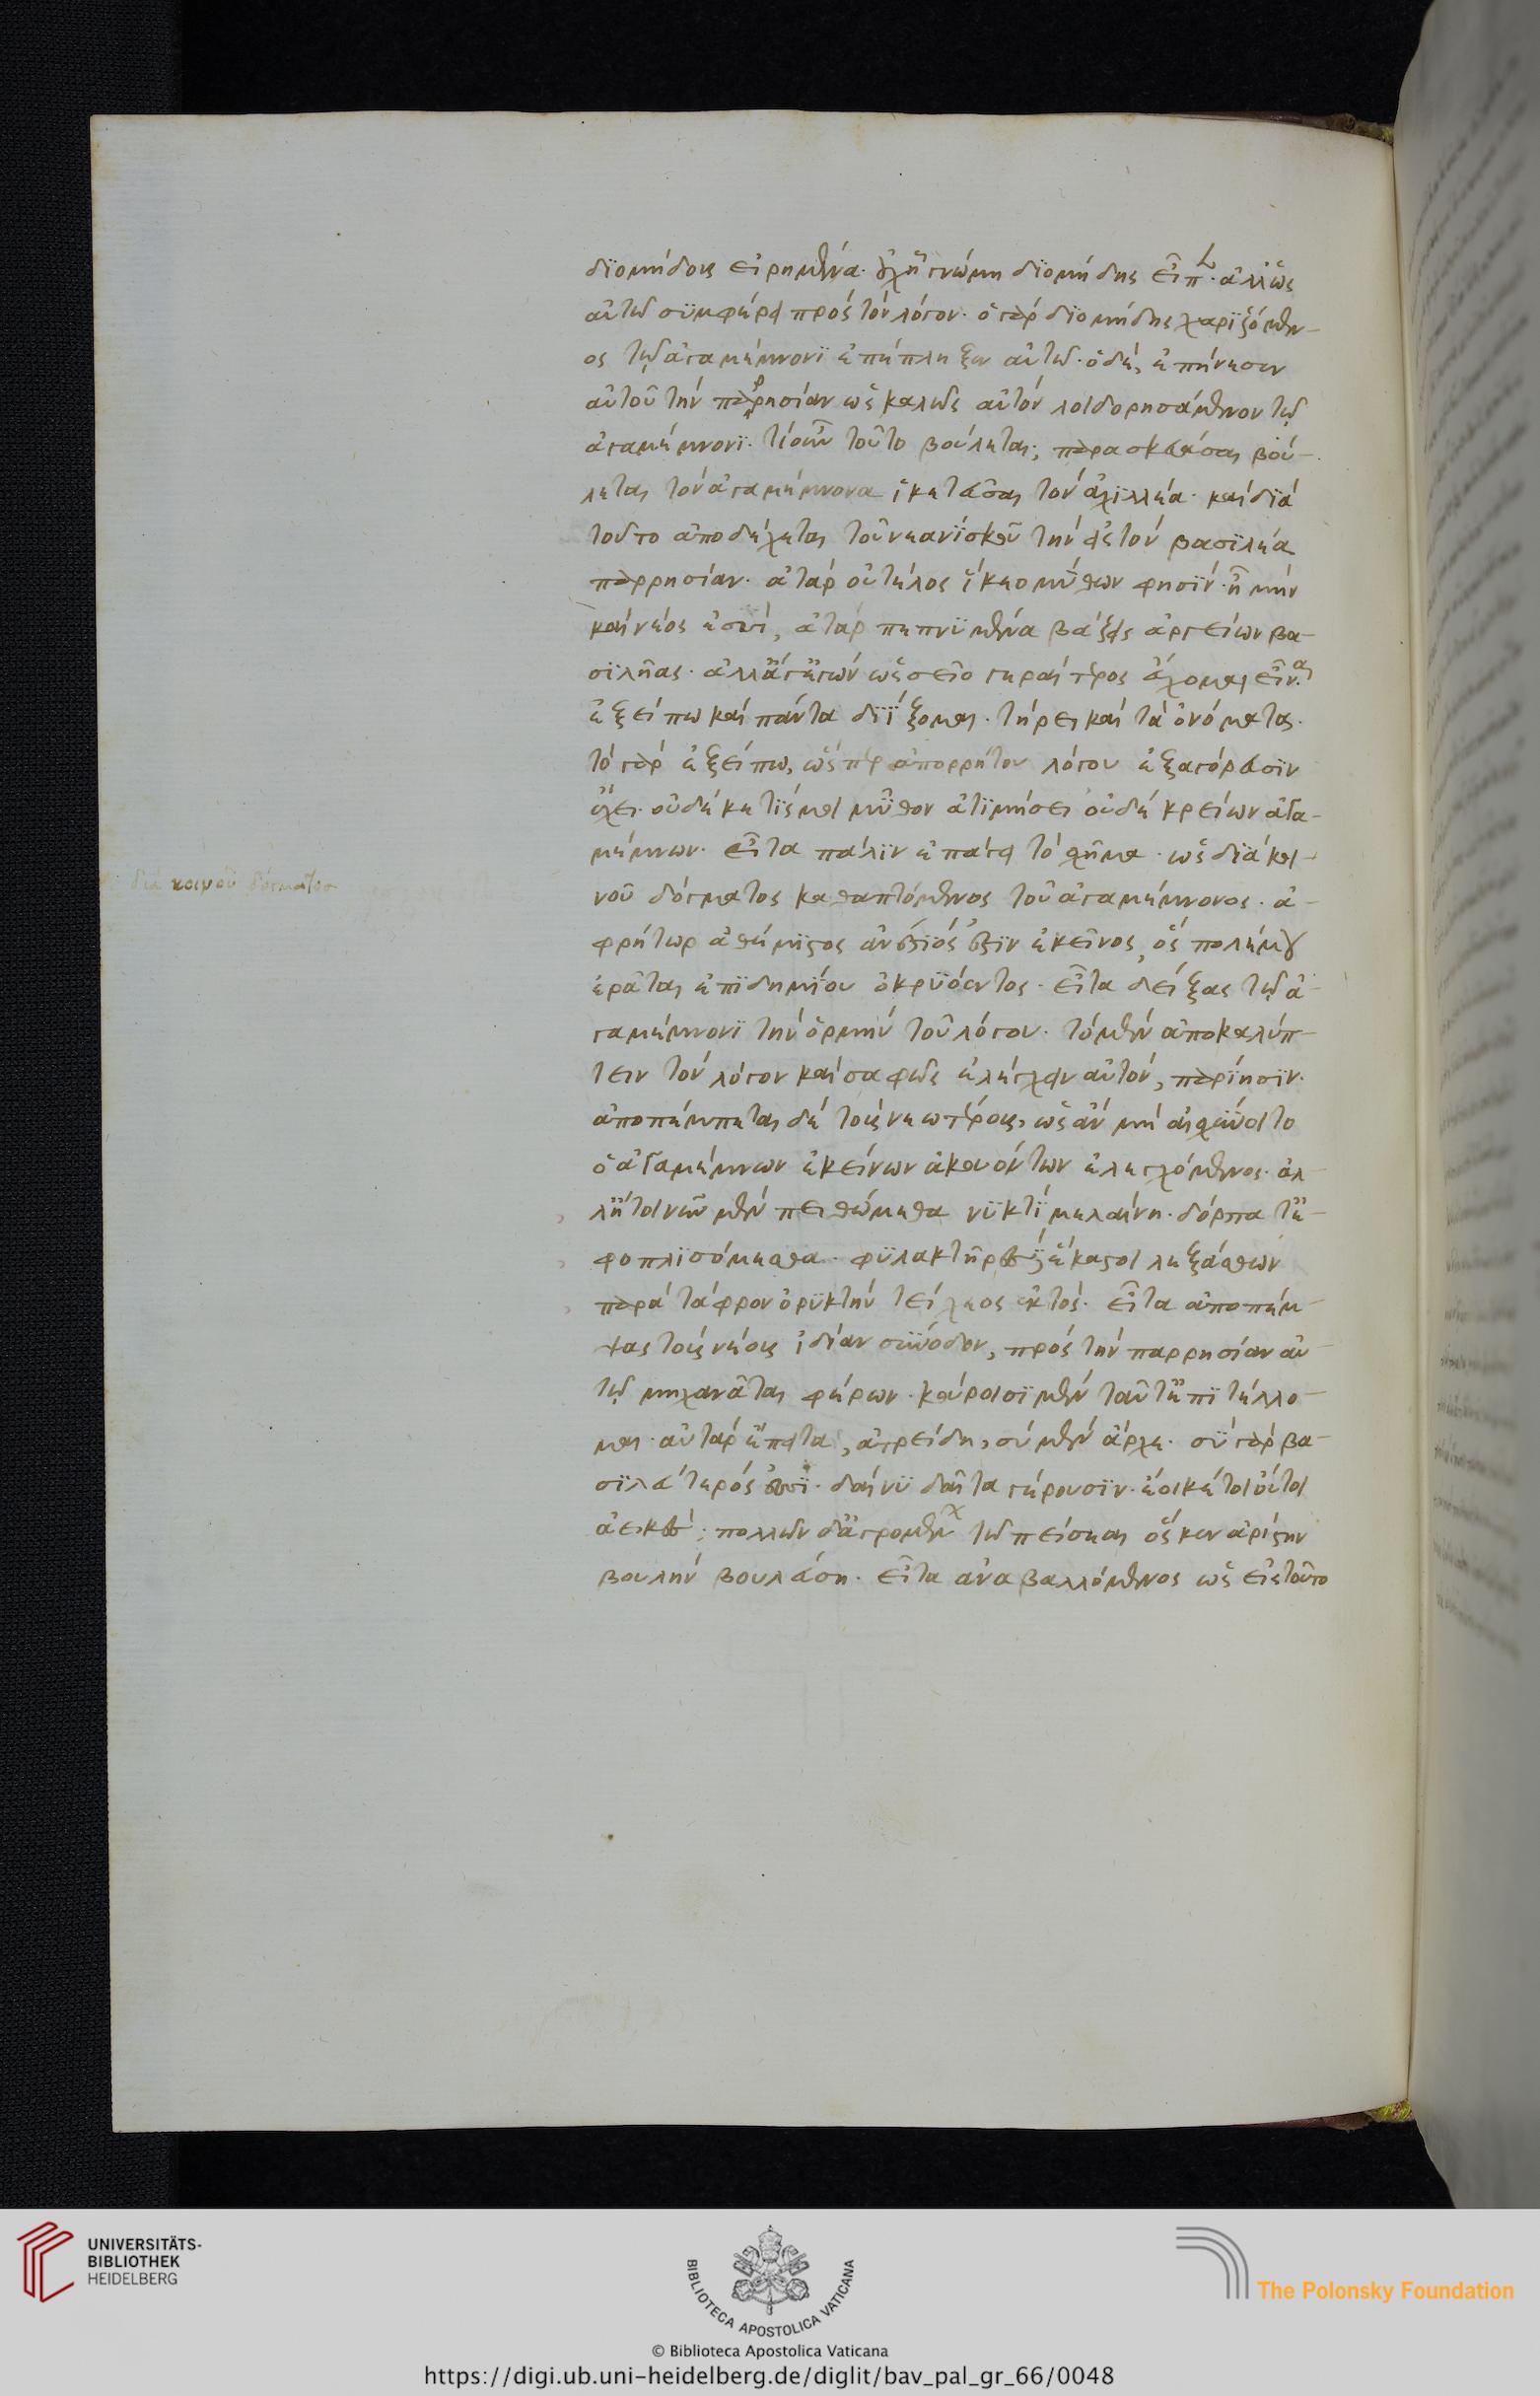 διομήδους εἰρημένα· οὐχ ᾗ γνώμη διομήδης εἶπεν· ἀλλ' ὡς
αὐτῷ συμφέρει πρὸς τὸν λόγον· ὁ γὰρ διομήδης χαριζόμεν-
ος τῷ ἀγαμέμνονι ἐπέπληξεν αὐτῷ· ὁ δὲ, ἐπήνεσεν
αὐτοῦ τὴν παρρησίαν ὡς καλῶς αὐτὸν λοιδορησάμενον τῷ
ἀγαμέμνονι· τί οὖν τοῦτο βούλεται; παρασκευάσαι βού-
λεται τὸν ἀγαμέμνονα ἱκετεῦσαι τὸν ἀχιλλέα· καὶ διὰ
τοῦτο ἀποδέχεται τοῦ νεανίσκου τὴν εἰς τὸν βασιλέα
παρρησίαν· ἀτὰρ οὐ τέλος ἵκεο μύθων φησίν· ἦ μὴν
καὶ νέος ἐσσὶ, ἀτὰρ πεπνυμένα βάζεις ἀργείων βα-
σιλῆας· ἀλλ' ἄγ' ἐγὼν ὡς σεῖο γεραίτερος εὔχομαι εἶναι
ἐξείπω καὶ πάντα διίξομαι· τήρει καὶ τὰ ὀνόματα·
τὸ γὰρ ἐξείπω, ὥσπερ ἀπορρήτου λόγου ἐξαγόρευσιν
ἔχει· οὐδέ κε τίς μοι μῦθον ἀτιμήσει οὐδὲ κρείων ἀγα-
μέμνων· εἶτα πάλιν ἐπάγει τὸ σχῆμα· ὡς διὰ κοι-
νοῦ δόγματος καθαπτόμενος τοῦ ἀγαμέμνονος· ἀ-
φρήτωρ ἀθέμιστος ἀνέστιός ἐστιν ἐκεῖνος, ὃς πολέμου
ἔραται ἐπιδημίου ὀκρυόεντος· εἶτα δείξας τῷ ἀ-
γαμέμνονι τὴν ὁρμὴν τοῦ λόγου· τὸ μὲν ἀποκαλύπ-
τειν τὸν λόγον καὶ σαφῶς ἐλέγχειν αὐτὸν, παρίησιν·
ἀποπέμπεται δὲ τοὺς νεωτέρους, ὡς ἂν μὴ αἰσχύνοιτο
ὁ ἀγαμέμνων ἐκείνων ἀκουόντων ἐλεγχόμενος· ἀλ-
λ' ἤτοι νῦν μὲν πειθώμεθα νυκτὶ μελαίνῃ· δόρπα τ' ἐ-
φοπλισόμεσθα· φυλακτῆρες δὲ ἕκαστοι λεξάσθων
παρὰ τάφρον ὀρυκτὴν τείχεος ἐκτός· εἶτα ἀποπέμ-
ψας τοὺς νέους ἰδίαν σύνοδον, πρὸς τὴν παρρησίαν αὐ-
τῷ μηχανᾶται φέρων· κούροισι μὲν ταῦτ' ἐπιτέλλο-
μαι· αὐτὰρ ἔπειτα, ἀτρείδη, σὺ μὲν ἄρχε· σὺ γὰρ βα-
σιλεύτερός ἐσσι· δαίνυ δαῖτα γέρουσιν· ἔοικέ τοι οὔτοι
ἀεικές; πολλῶν δ' ἀγρομένων τῷ πείσεαι ὅς κεν ἀρίστην
βουλὴν βουλεύσῃ· εἶτα ἀναβαλλόμενος ὡς εἰς τοῦτο
διὰ κοινοῦ δόγματος
UNIVERSITÄTS-
BIBLIOTHEK
HEIDELBERG
BIBLIOTECA APOSTOLICA VATICANA
The Polonsky Foundation
© Biblioteca Apostolica Vaticana
https://digi.ub.uni-heidelberg.de/diglit/bav_pal_gr_66/0048